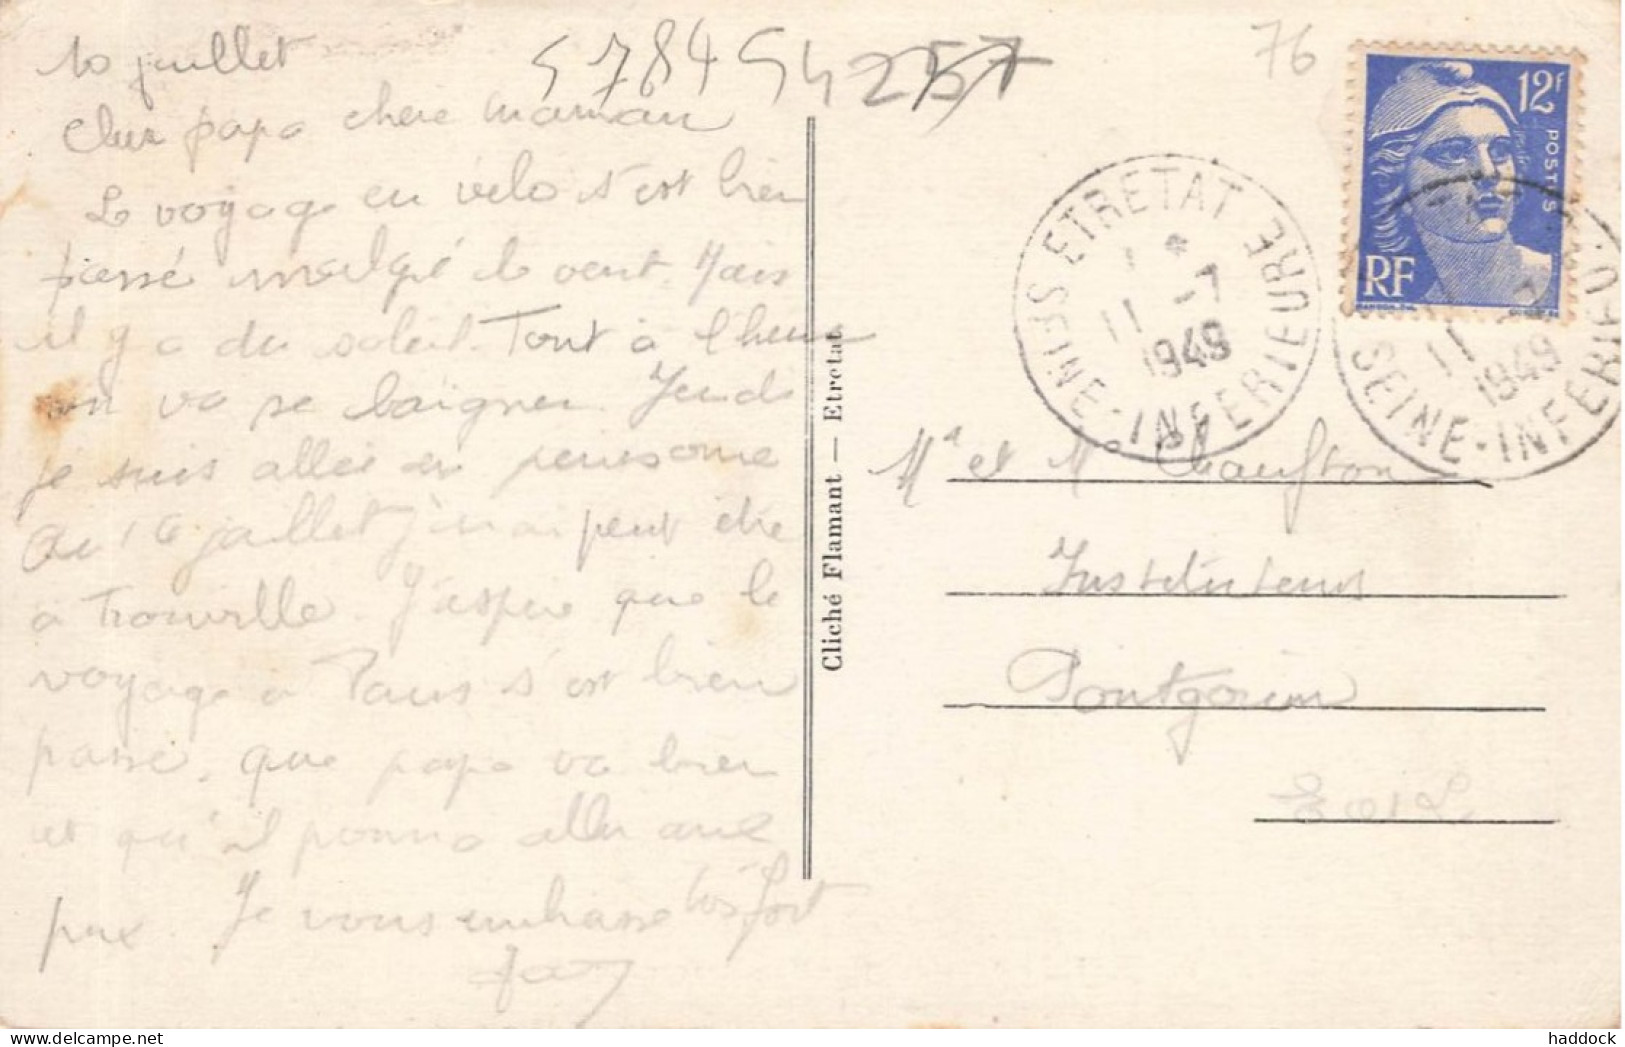 10 juillet
Cher papa chere maman
Le voyage en vélo s'est bien
passé malgré le vent. Mais
il y a du soleil. Tout à l'heure
on va se baigner. Jeudi
je suis allée en
Au 14 juillet j'irai peut être
à Trouville. J'espère que le
voyage à Paris s'est bien
passé, que papa va bien
et qu'il pourra aller aux
prix. Je vous embrasse très fort
5784 54257
76
Cliché Flamant — Etretat
12F
POSTES
RF
ETRETAT
SEINE-INFERIEURE
11 -7
1949
11 -7
1949
SEINE-INFERIEURE
Mr et Me
Instituteurs
Pontgouin
E et L
haddock